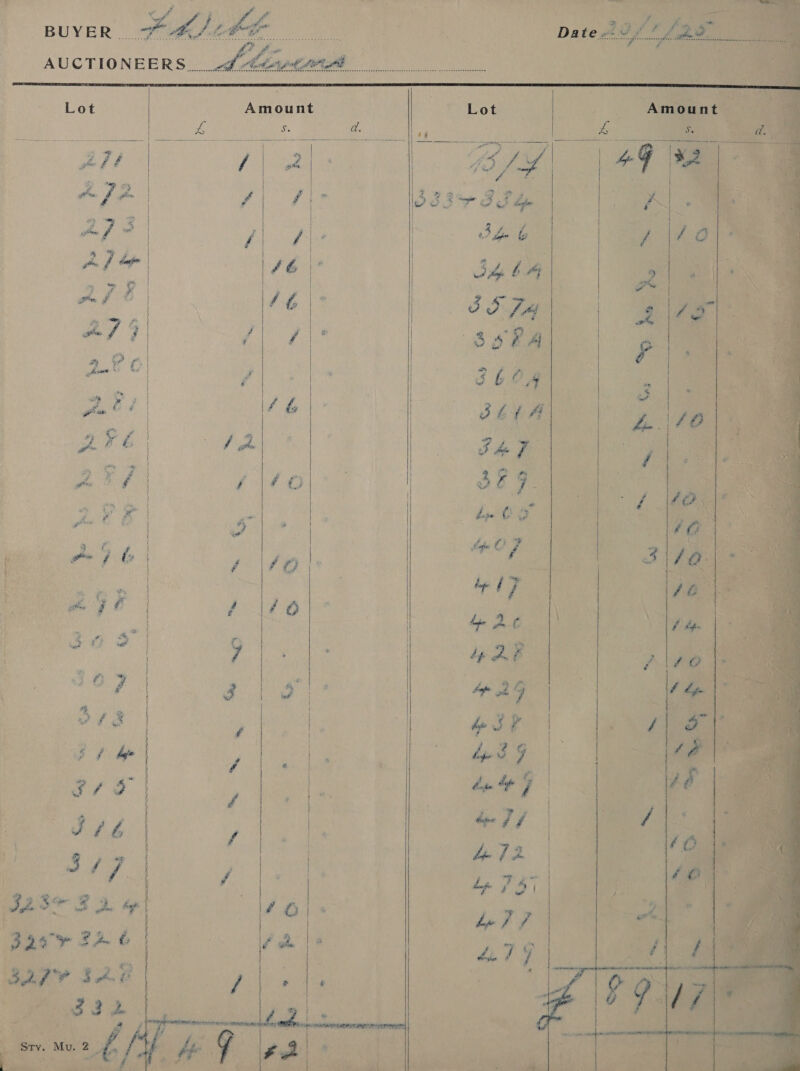 BUYER
Date
AUCTIONEERS Stevens
Lot Amount Lot Amount
£ s. d. £ s. d.
271 1 2 B/F 49 2
272 1 1 - 333+334 1 -
273 1 1 - 346 1 10 -
274 16 - 346A 2 -
278 16 - 357A 2 15 -
279 1 1 - 358A 8 -
280 1 - 360A 3 -
281 16 - 361A 4 10
286 12 - 347 1 -
287 1 10 389 1 10 -
288 5 - 405 10
296 1 10 - 407 3 10 -
298 1 10 - 417 10
305 9 - 420 14
307 3 5 - 428 1 10 -
313 1 429 14
314 1 - 438 1 5 -
315 1 439 18
316 1 - 449 18
317 1 471 1 -
323+324 10 - 472 10
325+326 12 - 475 10
327+328 1 - - 477 2
332 12 - 479 1 1
£ 89 17 -
Sty. Mu. 2 C/F 49 2 -